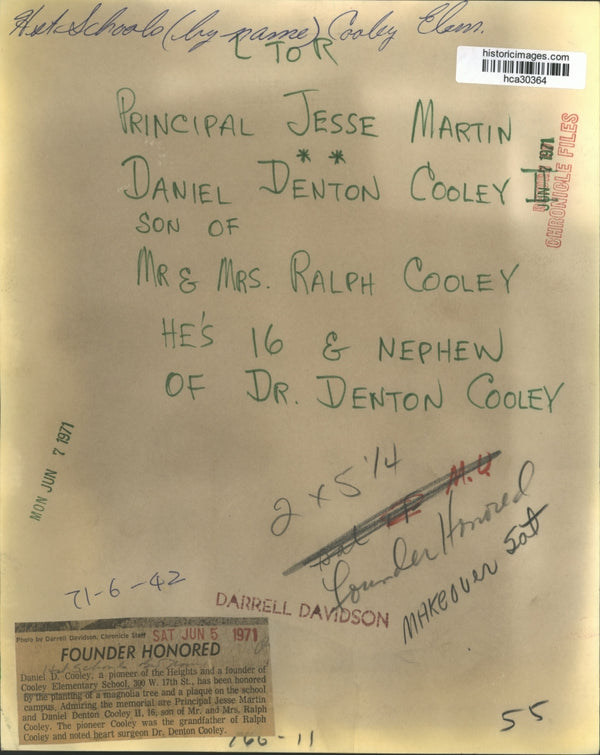 Hst-Schools (by name) Cooley Elem.
historicimages.com
hca30364
L TO R
PRINCIPAL JESSE MARTIN
DANIEL DENTON COOLEY II
SON OF
MR & MRS. RALPH COOLEY
HE'S 16 & NEPHEW
OF DR. DENTON COOLEY
JUN 7 1971
CHRONICLE FILES
MON JUN 7 1971
2 x 5 1/4
M.Q
Sat
Founder Honored
MAKEOVER Sat
71-6-42
DARRELL DAVIDSON
Photo by Darrell Davidson, Chronicle Staff
SAT JUN 5 1971
FOUNDER HONORED
Daniel D. Cooley, a pioneer of the Heights and a founder of
Cooley Elementary School, 300 W. 17th St., has been honored
by the planting of a magnolia tree and a plaque on the school
campus. Admiring the memorial are Principal Jesse Martin
and Daniel Denton Cooley II, 16, son of Mr. and Mrs. Ralph
Cooley. The pioneer Cooley was the grandfather of Ralph
Cooley and noted heart surgeon Dr. Denton Cooley.
166-11
55